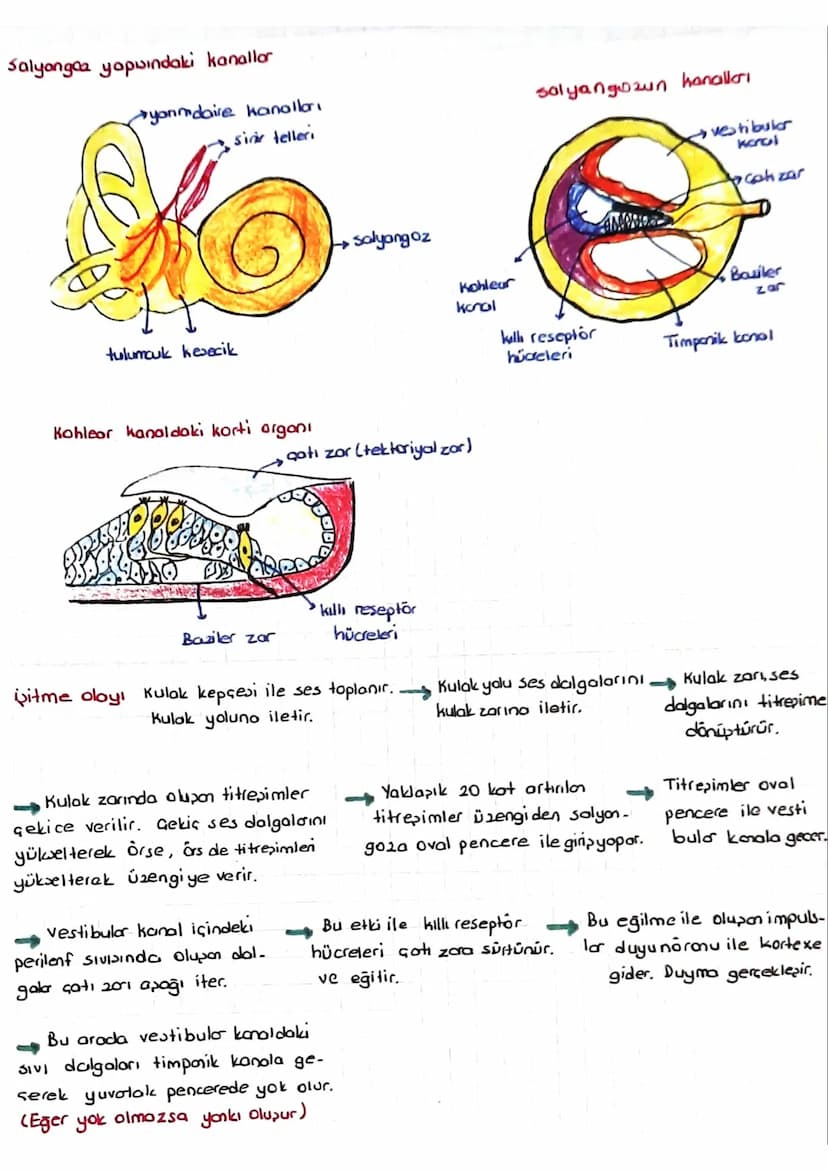 Salyangoz yapısındaki kanallar
yarımdaire kanalları
sinir telleri
salyangoz
tulumcuk kesecik
salyangozun kanalları
vestibular
kanal
çatı zar
Baziler
zar
Kohlear
kanal
kıllı reseptör
hücreleri
Timpanik kanal
Kohlear kanaldaki korti organı
çatı zar (tektoriyal zar)
kıllı reseptör
hücreleri
Baziler zar
işitme olayı Kulak kepçesi ile ses toplanır. → Kulak yolu ses dalgalarını → Kulak zarı, ses
Kulak yoluna iletir. kulak zarına iletir. dalgalarını titreşime
dönüştürür.
→ Kulak zarında oluşan titreşimler
çekice verilir. Çekiç ses dalgalarını
yükselterek örse, örs de titreşimleri
yükselterek üzengiye verir.
→ Yaklaşık 20 kat artırılan
titreşimler üzengiden salyan-
goza oval pencere ile giriş yapar.
→ Titreşimler oval
pencere ile vesti
bular kanala geçer.
→ Vestibular kanal içindeki
perilenf sıvısında oluşan dal-
galar çatı zarı aşağı iter.
→ Bu etki ile kıllı reseptör
hücreleri çatı zara sürtünür.
ve eğilir.
→ Bu eğilme ile oluşan impuls-
lar duyu nöronu ile kortexe
gider. Duyma gerçekleşir.
→ Bu arada vestibular kanaldaki
sıvı dalgaları timpanik kanala ge-
çerek yuvarlak pencerede yok olur.
(Eğer yok olmazsa yankı oluşur)